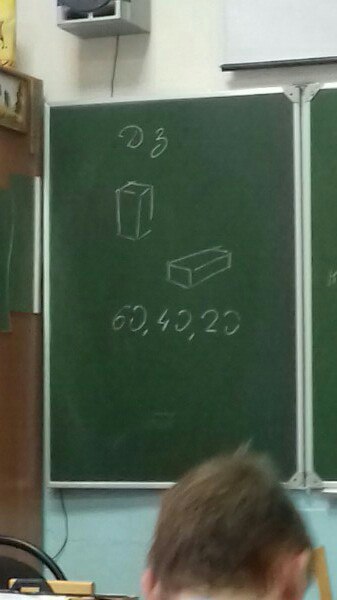 ДЗ
60, 40, 20